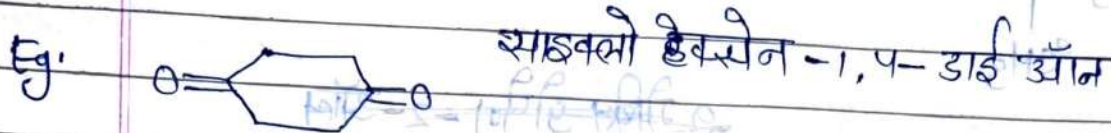 Eg. O= =O साइक्लो हेक्सेन -1,4- डाई ऑन